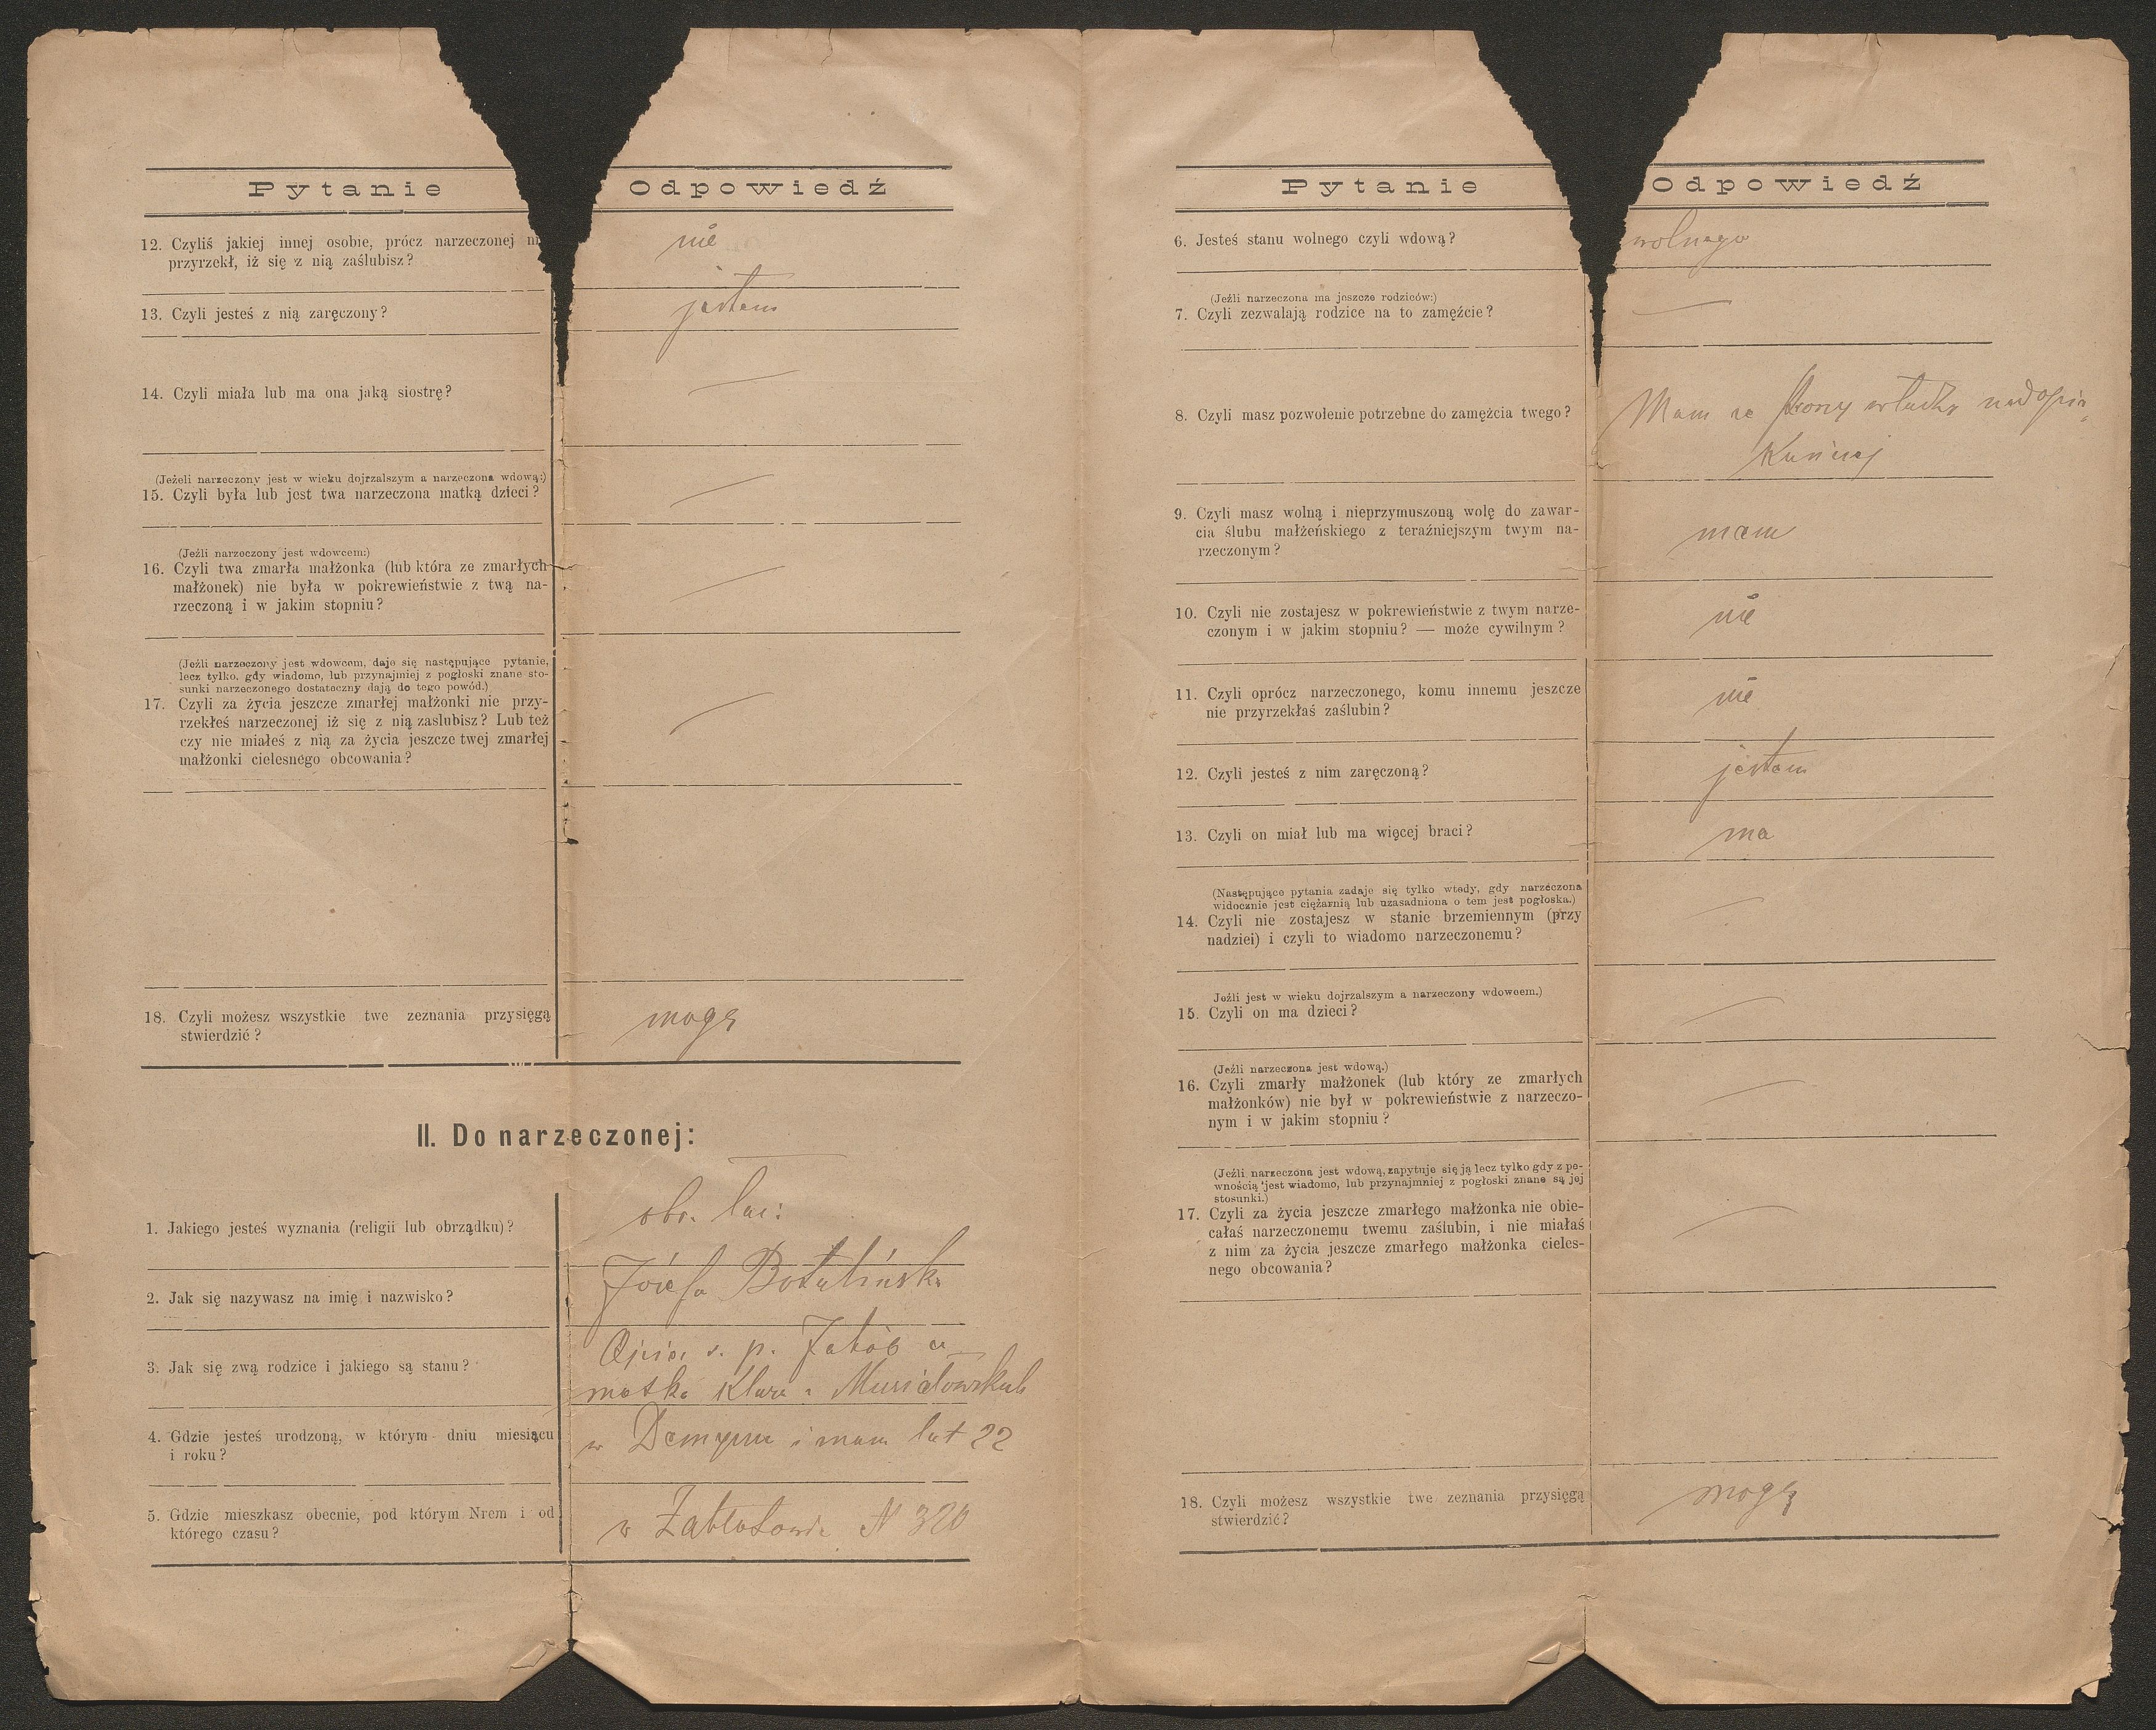 Pytanie
Odpowiedź
12. Czyliś jakiej innej osobie, prócz narzeczonej
przyrzekł, iż się z nią zaślubisz?
nie
13. Czyli jesteś z nią zaręczony?
jestem
14. Czyli miała lub ma ona jaką siostrę?
(Jeżeli narzeczony jest w wieku dojrzalszym a narzeczona wdową:)
15. Czyli była lub jest twa narzeczona matką dzieci?
(Jeźli narzeczony jest wdowcem:)
16. Czyli twa zmarła małżonka (lub która ze zmarłych
małżonek) nie była w pokrewieństwie z twą na-
rzeczoną i w jakim stopniu?
(Jeźli narzeczony jest wdowcem, daje się następujące pytanie,
lecz tylko, gdy wiadomo, lub przynajmiej z pogłoski znane sto-
sunki narzeczonego dostateczny dają do tego powód.)
17. Czyli za życia jeszcze zmarłej małżonki nie przy-
rzekłeś narzeczonej iż się z nią zaslubisz? Lub też
czy nie miałeś z nią za życia jeszcze twej zmarłej
małżonki cielesnego obcowania?
18. Czyli możesz wszystkie twe zeznania przysięgą
stwierdzić?
mogę
II. Do narzeczonej:
1. Jakiego jesteś wyznania (religii lub obrządku)?
obr. łac:
2. Jak się nazywasz na imię i nazwisko?
Józefa
3. Jak się zwą rodzice i jakiego są stanu?
ś. p. Jakób a
matka Klara
4. Gdzie jesteś urodzoną, w którym dniu miesiącu
i roku?
w i mam lat 22
5. Gdzie mieszkasz obecnie, pod którym Nrem i od
którego czasu?
w Zabłotowie N 320
Pytanie
Odpowiedź
6. Jesteś stanu wolnego czyli wdową?
wolnego
(Jeźli narzeczona ma jeszcze rodziców:)
7. Czyli zezwalają rodzice na to zamęźcie?
8. Czyli masz pozwolenie potrzebne do zamężcia twego?
Mam ze strony władzy nadopie-
kuńczej
9. Czyli masz wolną i nieprzymuszoną wolę do zawar-
cia ślubu małżeńskiego z teraźniejszym twym na-
rzeczonym?
mam
10. Czyli nie zostajesz w pokrewieństwie z twym narze-
czonym i w jakim stopniu? — może cywilnym?
nie
11. Czyli oprócz narzeczonego, komu innemu jeszcze
nie przyrzekłaś zaślubin?
nie
12. Czyli jesteś z nim zaręczoną?
jestem
13. Czyli on miał lub ma więcej braci?
ma
(Następujące pytania zadaje się tylko wtedy, gdy narzeczona
widocznie jest ciężarnią lub uzasadniona o tem jest pogłoska.)
14. Czyli nie zostajesz w stanie brzemiennym (przy
nadziei) i czyli to wiadomo narzeczonemu?
Jeźli jest w wieku dojrzalszym a narzeczony wdowcem.)
15. Czyli on ma dzieci?
(Jeźli narzeczona jest wdową.)
16. Czyli zmarły małżonek (lub który ze zmarłych
małżonków) nie był w pokrewieństwie z narzeczo-
nym i w jakim stopniu?
(Jeźli narzeczona jest wdową, zapytuje się ją lecz tylko gdy z pe-
wnością jest wiadomo, lub przynajmniej z pogłoski znane są jej
stosunki.)
17. Czyli za życia jeszcze zmarłego małżonka nie obie-
całaś narzeczonemu twemu zaślubin, i nie miałaś
z nim za życia jeszcze zmarłego małżonka cieles-
nego obcowania?
18. Czyli możesz wszystkie twe zeznania przysięgą
stwierdzić?
mogę